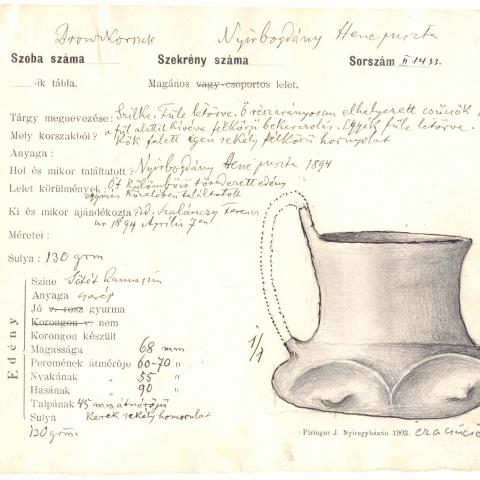 Bronzkorszak Nyirbogdány Hene puszta
Szoba száma Szekrény száma Sorszám II 1433.
-ik tábla. Magános vagy csoportos lelet.
Tárgy megnevezése: Szilke. Füle letörve. Ö részarányosan elhelyezett csúcsök
Mely korszakból? a fül alattit kivéve félkörű bekarcolás. Egyik füle letörve.
kök felett igen sekély félkörű hornyolat
Anyaga:
Hol és mikor találtatott? Nyirbogdány Hene puszta 1894
Lelet körülmények: Öt különböző töredezett edény
egymás közelében találtatott
Ki és mikor ajándékozta? id. Szalánczy Ferencz
úr 1894 Április 7én
Méretei:
Sulya: 130 grm
Edény
Szine Sötét hamuszin
Anyaga
Jó v. rosz gyurma
Korongon v. nem
Korongon készült
Magassága 68 mm
Peremének átmérője 60-70 "
Nyakának " 55 "
Hasának " 90 "
Talpának 45 mm átmérőjü
Sulya Kerek sekély homorulat
130 grm
1/1
Piringer J. Nyiregyházán 1903.